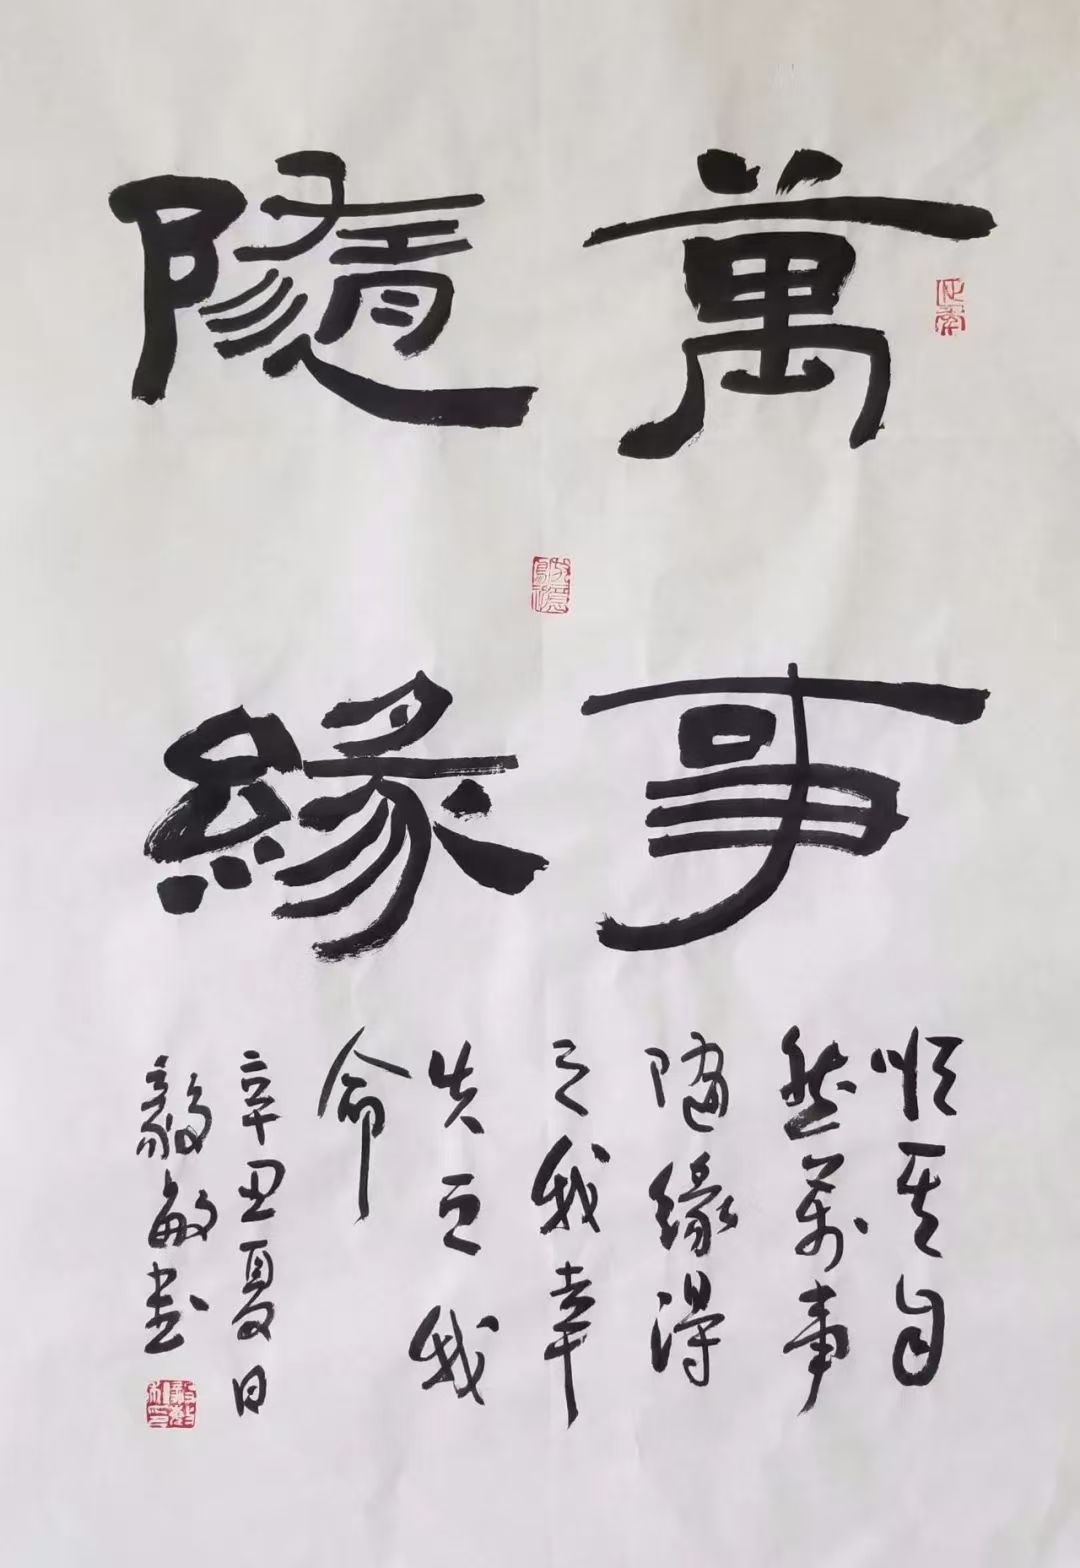 萬事
隨緣
順其自
然萬事
随緣得
之我幸
失之我
命
辛丑夏日
毅敏书